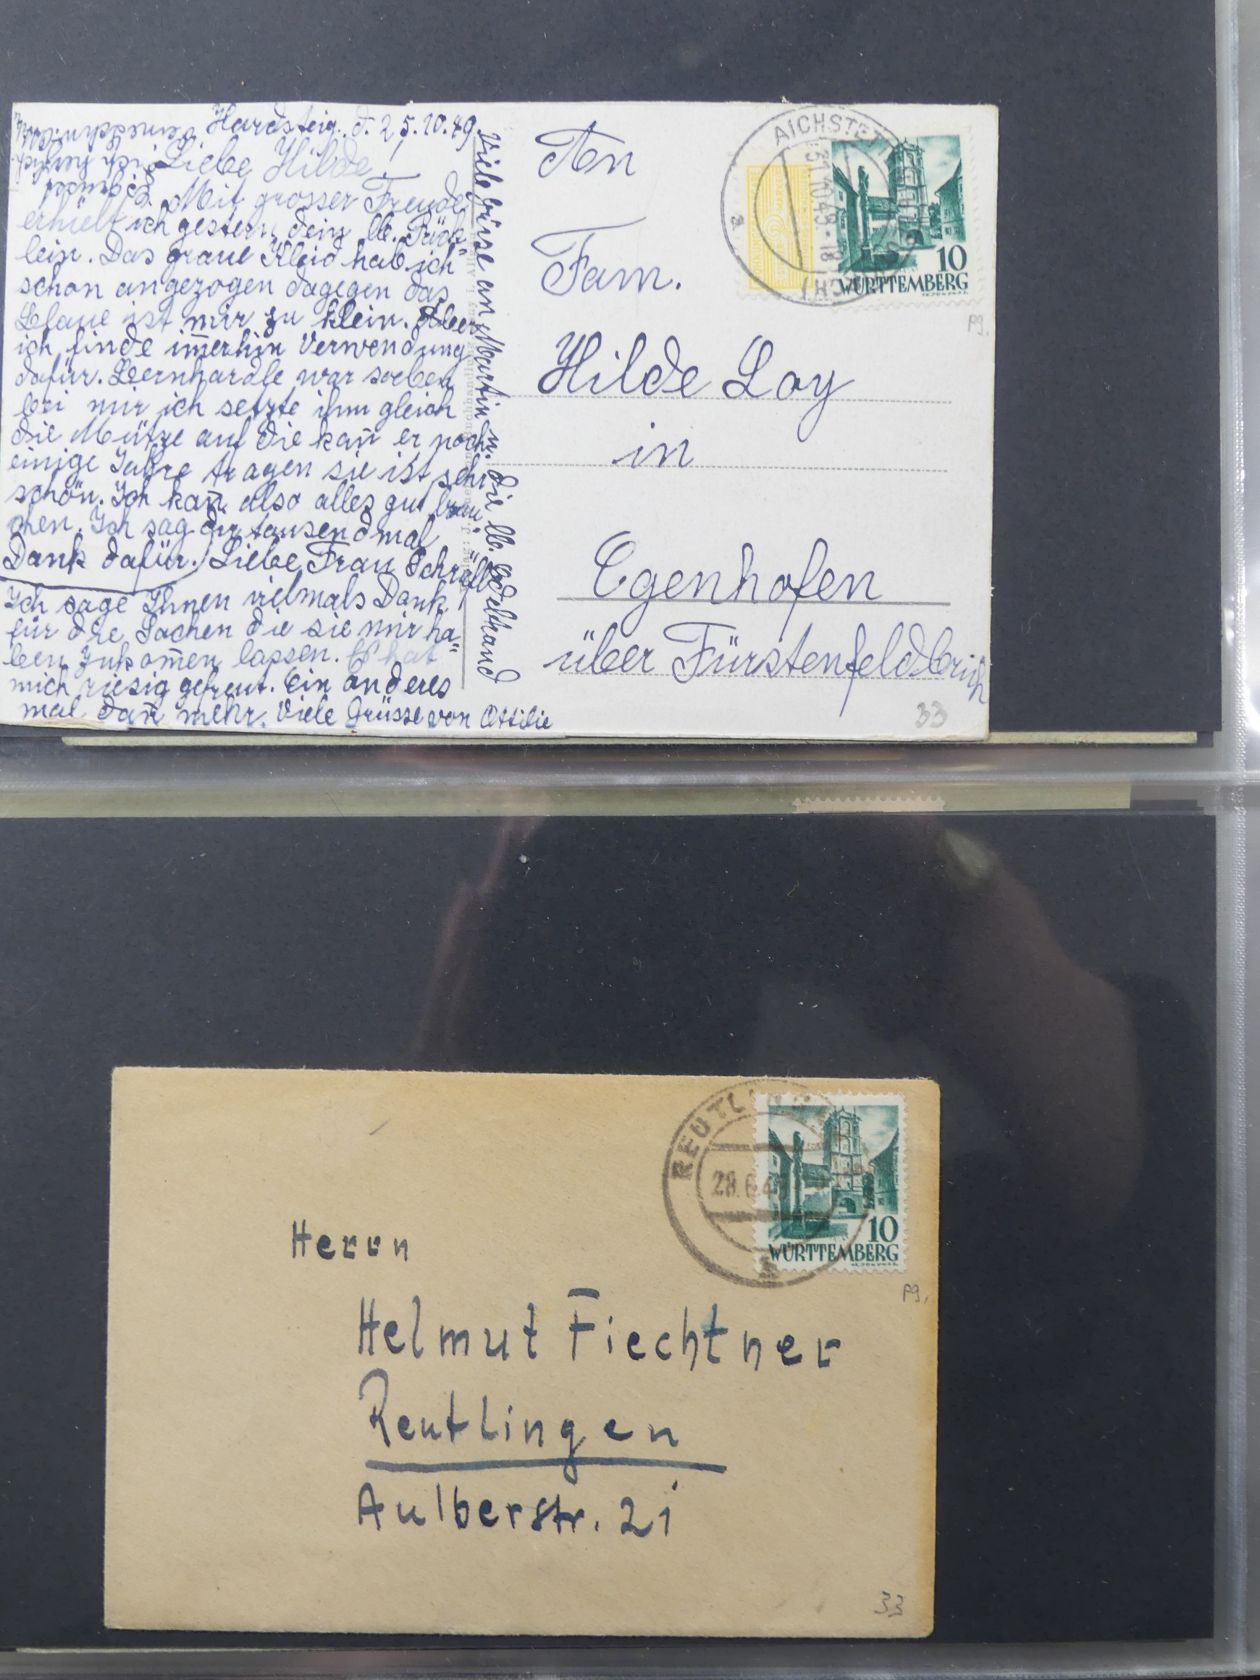 Hardsteig, d. 25.10.49
Liebe Hilde!
Mit grosser Freude
erhielt ich gestern dein lb. Päck
lein. Das graue Kleid hab ich
schon angezogen dagegen das
Blaue ist mir zu klein. Aber
ich finde im̄erhin Verwendung
dafür. Bernhardle war soeben
bei mir ich setzte ihm gleich
die Mütze auf die kan̄ er noch
einige Jahre tragen sie ist sehr
schön. Ich kan̄ also alles gut brau
chen. Ich sag dir tausendmal
Dank dafür. Liebe Frau
Ich sage Ihnen vielmals Dank
für die Sachen die sie mir ha"
ben zukom̄en lassen. Es hat
mich riesig gefreut. Ein anderes
mal dan̄ mehr. Viele Grüsse von Ottilie
Viele Grüsse an Martin u. die lb.
An
Fam.
Hilde Loy
in
Egenhofen
über Fürstenfeldbrück
AICHSTET
10
WÜRTTEMBERG
Pg.
33
REUTLINGEN
28.6.4
10
WÜRTTEMBERG
Pg.
Herrn
Helmut Fiechtner
Reutlingen
Aulberstr. 21
33